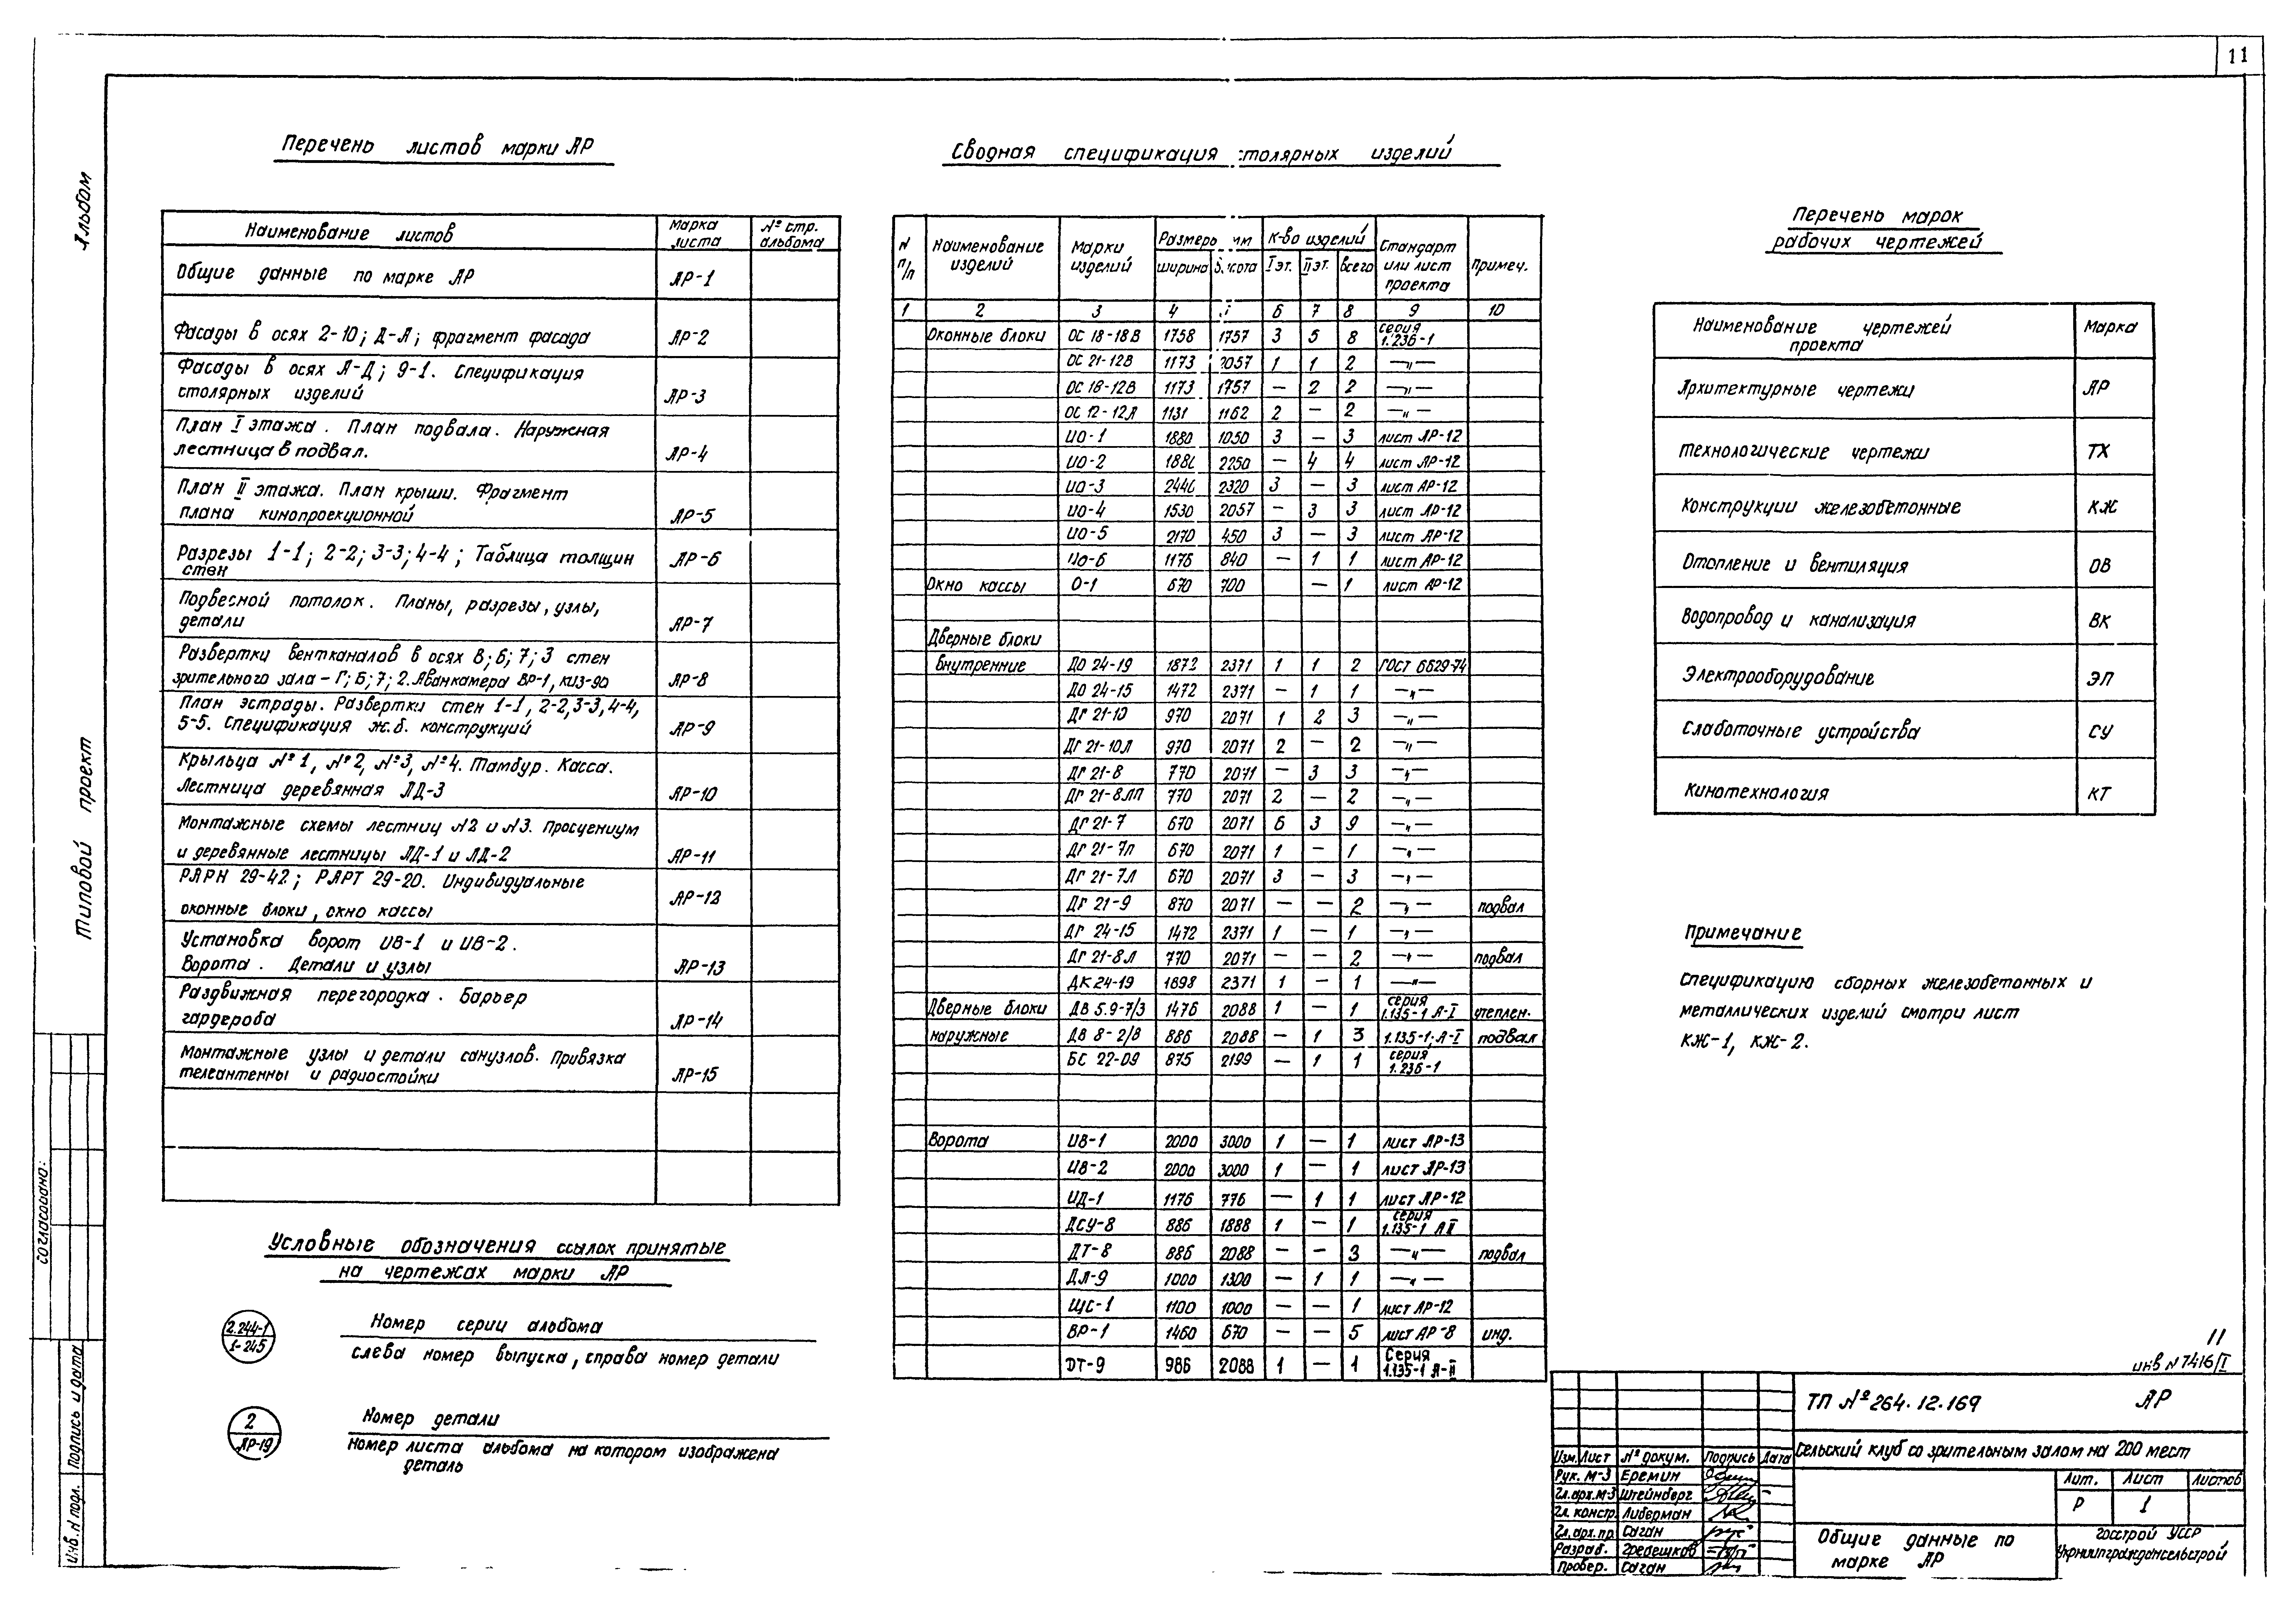 11
Альбом
Типовой проект
Согласовано:
Подпись и дата
Инв. N подл.
Перечень листов марки АР
Наименование листов | Марка листа | № стр. альбома
Общие данные по марке АР | АР-1
Фасады в осях 2-10; Д-А; фрагмент фасада | АР-2
Фасады в осях А-Д; 9-1. Спецификация
столярных изделий | АР-3
План I этажа. План подвала. Наружная
лестница в подвал. | АР-4
План II этажа. План крыши. Фрагмент
плана кинопроекционной | АР-5
Разрезы 1-1; 2-2; 3-3; 4-4; Таблица толщин
стен | АР-6
Подвесной потолок. Планы, разрезы, узлы,
детали | АР-7
Развертки вентканалов в осях 8; 6; 7; 3 стен
зрительного зала - Г; Б; 7; 2. Аванкамера ВР-1, КИЗ-90 | АР-8
План эстрады. Развертки стен 1-1, 2-2, 3-3, 4-4,
5-5. Спецификация ж.б. конструкций | АР-9
Крыльца №1, №2, №3, №4. Тамбур. Касса.
Лестница деревянная ЛД-3 | АР-10
Монтажные схемы лестниц N2 и N3. Просцениум
и деревянные лестницы ЛД-1 и ЛД-2 | АР-11
РАРН 29-42; РАРТ 29-20. Индивидуальные
оконные блоки, окно кассы | АР-12
Установка ворот ИВ-1 и ИВ-2.
Ворота. Детали и узлы | АР-13
Раздвижная перегородка. Барьер
гардероба | АР-14
Монтажные узлы и детали санузлов. Привязка
телеантенны и радиостойки | АР-15
Условные обозначения ссылок принятые
на чертежах марки АР
2.244-1
1-245
Номер серии альбома
слева номер выпуска, справа номер детали
2
АР-19
Номер детали
Номер листа альбома на котором изображена
деталь
Сводная спецификация столярных изделий
N п/п | Наименование изделий | Марки изделий | Размеры мм | К-во изделий | Стандарт или лист проекта | Примеч.
ширина | высота | I эт. | II эт. | всего
1 | 2 | 3 | 4 | 5 | 6 | 7 | 8 | 9 | 10
Оконные блоки | ОС 18-18В | 1758 | 1757 | 3 | 5 | 8 | серия 1.236-1
ОС 21-12В | 1173 | 2057 | 1 | 1 | 2 | —„—
ОС 18-12В | 1173 | 1757 | — | 2 | 2 | —„—
ОС 12-12А | 1131 | 1162 | 2 | — | 2 | —„—
ИО-1 | 1880 | 1050 | 3 | — | 3 | лист АР-12
ИО-2 | 188 | 2250 | — | 4 | 4 | лист АР-12
ИО-3 | 244 | 2320 | 3 | — | 3 | лист АР-12
ИО-4 | 1530 | 2057 | — | 3 | 3 | лист АР-12
ИО-5 | 2170 | 450 | 3 | — | 3 | лист АР-12
ИО-6 | 1176 | 840 | — | 1 | 1 | лист АР-12
Окно кассы | О-1 | 670 | 700 | | — | 1 | лист АР-12
Дверные блоки
внутренние | ДО 24-19 | 1872 | 2371 | 1 | 1 | 2 | ГОСТ 6629-74
ДО 24-15 | 1472 | 2371 | — | 1 | 1 | —„—
ДГ 21-10 | 970 | 2071 | 1 | 2 | 3 | —„—
ДГ 21-10Л | 970 | 2071 | 2 | — | 2 | —„—
ДГ 21-8 | 770 | 2071 | — | 3 | 3 | —„—
ДГ 21-8ЛП | 770 | 2071 | 2 | — | 2 | —„—
ДГ 21-7 | 670 | 2071 | 6 | 3 | 9 | —„—
ДГ 21-7п | 670 | 2071 | 1 | — | 1 | —„—
ДГ 21-7Л | 670 | 2071 | 3 | — | 3 | —„—
ДГ 21-9 | 870 | 2071 | — | — | 2 | —„— | подвал
ДГ 24-15 | 1472 | 2371 | 1 | — | 1 | —„—
ДГ 21-8Л | 770 | 2071 | — | — | 2 | —„— | подвал
ДК 24-19 | 1898 | 2371 | 1 | — | 1 | —„—
Дверные блоки | ДВ 5.9-7/3 | 1476 | 2088 | 1 | — | 1 | серия 1.135-1 А-I | утеплен.
наружные | ДВ 8-2/8 | 886 | 2088 | — | 1 | 3 | 1.135-1; А-I | подвал
БС 22-09 | 875 | 2199 | — | 1 | 1 | серия 1.236-1
Ворота | ИВ-1 | 2000 | 3000 | 1 | — | 1 | лист АР-13
ИВ-2 | 2000 | 3000 | 1 | — | 1 | лист АР-13
ИД-1 | 1176 | 776 | — | 1 | 1 | лист АР-12
ДСУ-8 | 886 | 1888 | 1 | — | 1 | серия 1.135-1 АII
ДТ-8 | 886 | 2088 | — | — | 3 | —„— | подвал
ДЛ-9 | 1000 | 1300 | — | 1 | 1 | —„—
ЩС-1 | 1100 | 1000 | — | — | 1 | лист АР-12
ВР-1 | 1460 | 670 | — | — | 5 | лист АР-8 | инд.
ДТ-9 | 986 | 2088 | 1 | — | 1 | Серия 1.135-1 А-II
Перечень марок
рабочих чертежей
Наименование чертежей проекта | Марка
Архитектурные чертежи | АР
Технологические чертежи | ТХ
Конструкции железобетонные | КЖ
Отопление и вентиляция | ОВ
Водопровод и канализация | ВК
Электрооборудование | ЭЛ
Слаботочные устройства | СУ
Кинотехнология | КТ
Примечание
Спецификацию сборных железобетонных и
металлических изделий смотри лист
КЖ-1, КЖ-2.
11
инв N 7416/I
ТП №264.12.169 АР
Сельский клуб со зрительным залом на 200 мест
Изм. Лист № докум. Подпись Дата
Рук. М-3 Еремин
Гл.арх.М-3 Штейнберг
Гл. констр. Либерман
Гл.арх.пр. Саган
Разраб. Гребешков
Провер. Саган
Лит. Лист Листов
Р 1
Общие данные по
марке АР
Госстрой УССР
Укрниипграждансельстрой